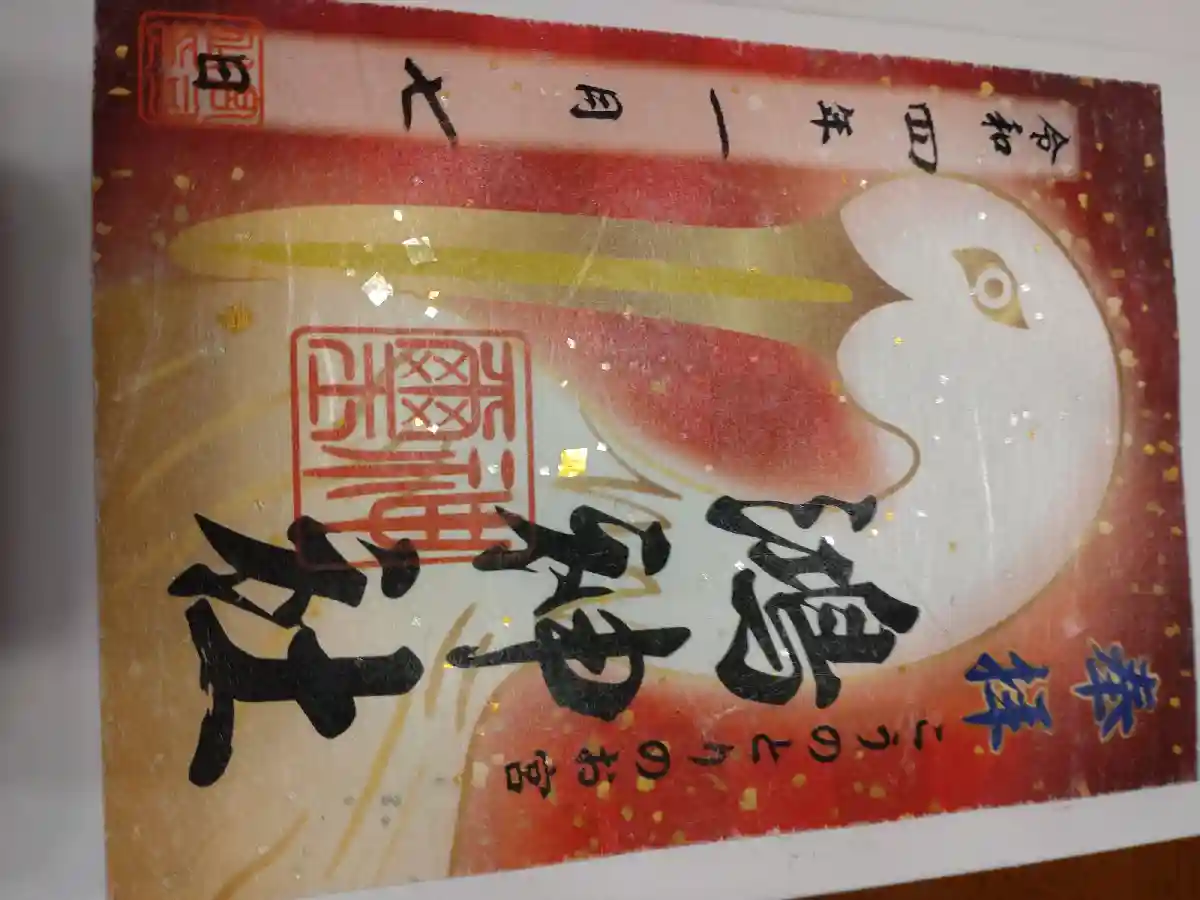 奉拝
こうのとりのお宮
鴻神社
神璽
令和四年一月七日